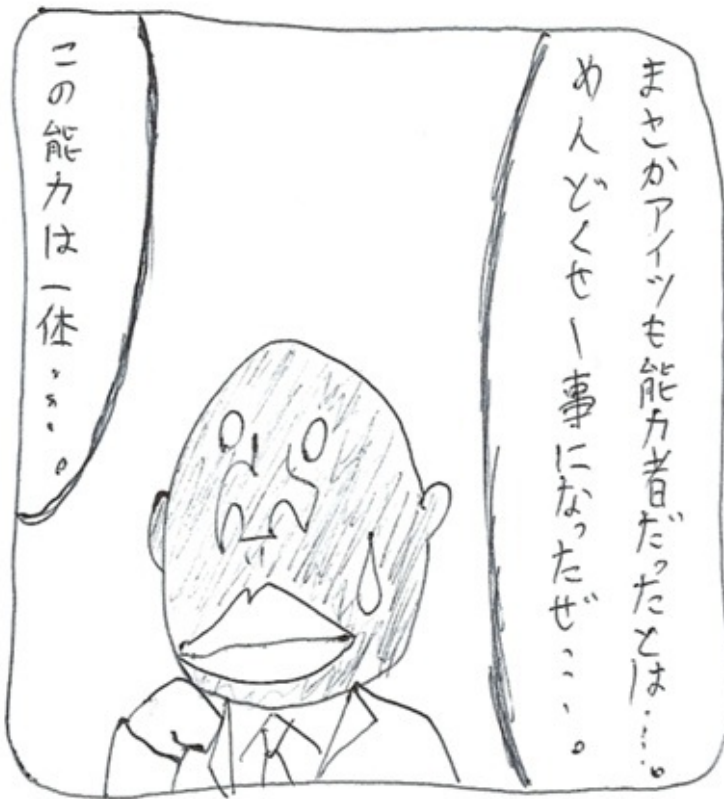 まさかアイツも能力者だったとは…。
めんどくせー事になったぜ…。
この能力は一体…。